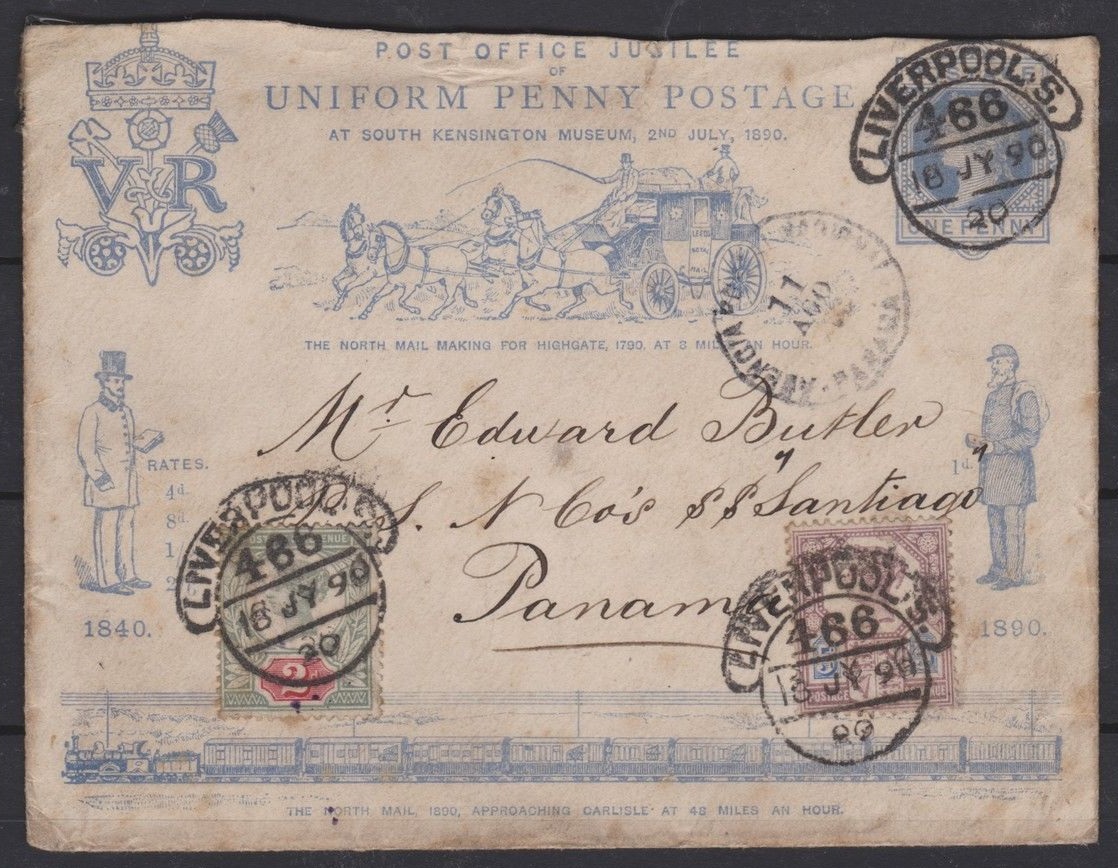 POST OFFICE JUBILEE
OF
UNIFORM PENNY POSTAGE
AT SOUTH KENSINGTON MUSEUM, 2ND JULY, 1890.
VR
LIVERPOOL.S.
466
18 JY 90
20
ONE PENNY
LEEDS
ROYAL
MAIL
AGENCIA
PANAMA
11
AGO
THE NORTH MAIL MAKING FOR HIGHGATE, 1790. AT 8 MILES AN HOUR.
Mr Edward Butler
P. S. N Co's SS "Santiago"
Panama
RATES.
4d.
8d.
1
2
1d.
LIVERPOOL.S.
466
18 JY 90
20
POSTAGE REVENUE
2d
LIVERPOOL.S.
466
18 JY 90
20
5
POSTAGE
1840.
1890.
THE NORTH MAIL, 1890, APPROACHING CARLISLE AT 48 MILES AN HOUR.